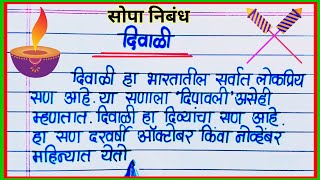 सोपा निबंध
दिवाळी
दिवाळी हा भारतातील सर्वात लोकप्रिय
सण आहे. या सणाला 'दिपावली' असेही
म्हणतात. दिवाळी हा दिव्यांचा सण आहे.
हा सण दरवर्षी ऑक्टोबर किंवा नोव्हेंबर
महिन्यात येतो